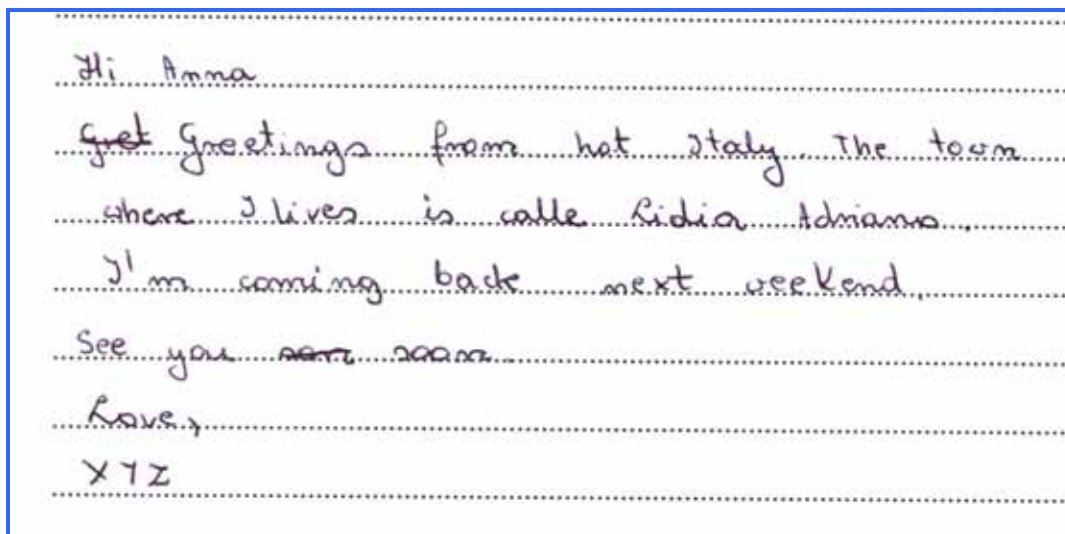 Hi Anna
Gret Greetings from hot Italy. The town
where I lives is calle Lidia Adriano.
I'm coming back next weekend.
See you son soon.
Love,
XYZ